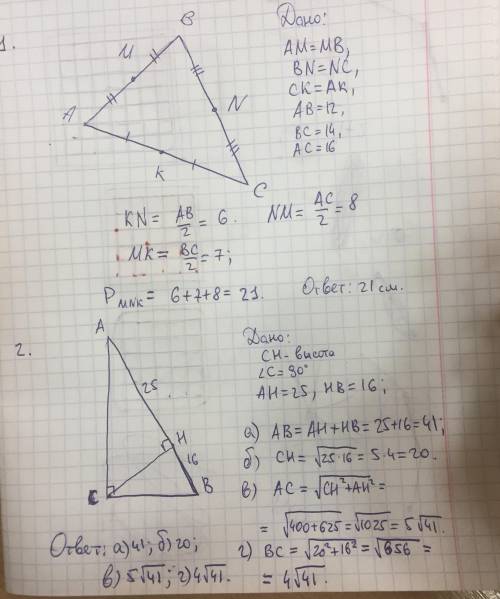 1.
B
M
A
N
K
C
Дано:
AM=MB,
BN=NC,
CK=AK,
AB=12,
BC=14,
AC=16
KN= AB/2 = 6. NM= AC/2 = 8
MK= BC/2 = 7;
P MNK = 6+7+8= 21. Ответ: 21 см.
2.
A
25
H
16
C
B
Дано:
CH- высота
∠C=90°
AH=25, HB=16;
а) AB=AH+HB=25+16=41;
б) CH=√25·16=5·4=20.
в) AC=√CH²+AH²=
=√400+625=√1025=5√41.
г) BC=√20²+16²=√656=
=4√41.
Ответ: а)41; б)20;
в) 5√41; г)4√41.